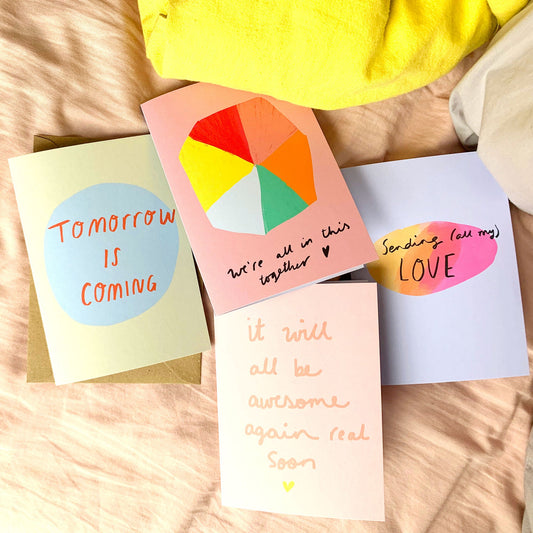 TOMORROW
IS
COMING
We're all in this
together
Sending (all my)
LOVE
it will
all be
awesome
again real
soon